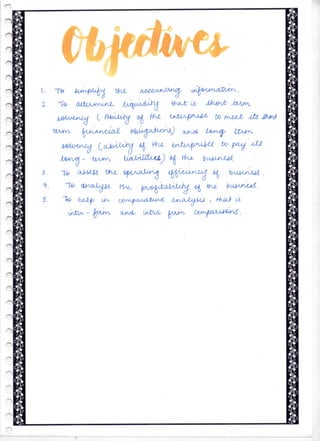 Objectives
1. To simplify the accounting information.
2. To determine liquidity that is short term
solvency (Ability of the enterprise to meet its short
term financial obligations) and long term
solvency (ability of the enterprises to pay its
long-term liabilities) of the business
3. To assess the operating efficiency of business
4. To analyse the profitability of the business.
5. To help in comparative analysis, that is
inter-firm and intra firm comparisons.